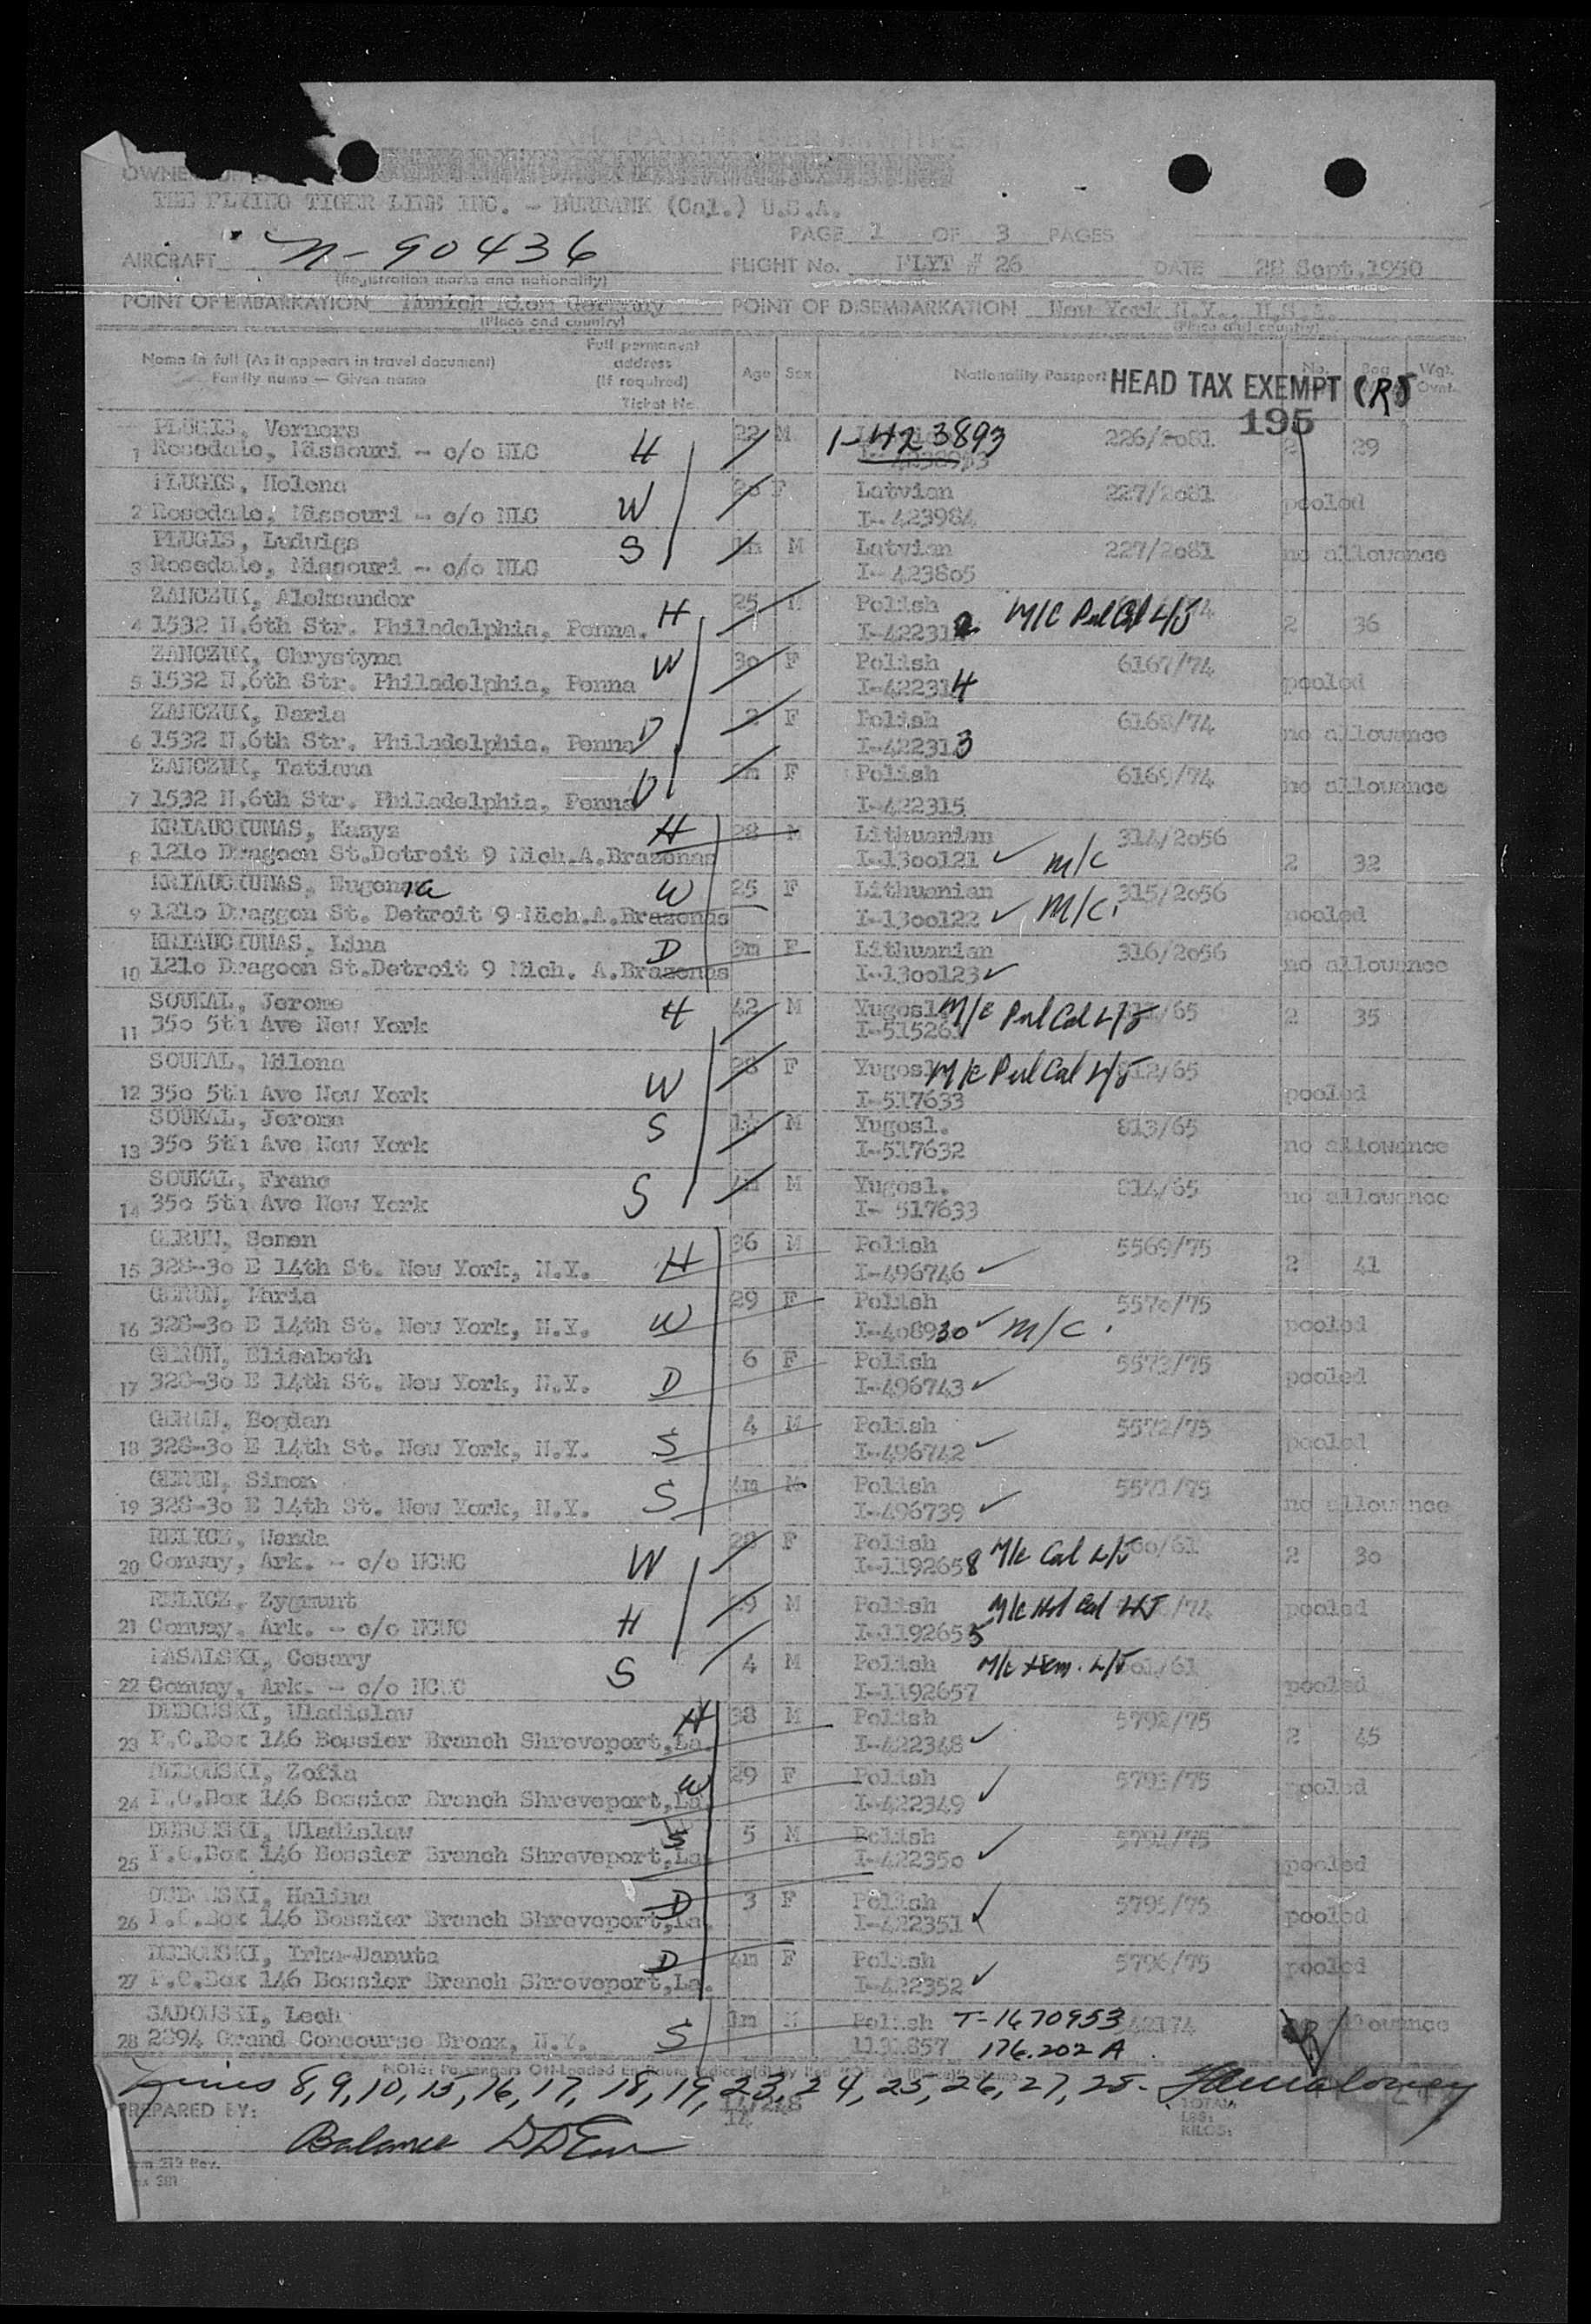 AIR PASSENGER MANIFEST
OWNER
THE FLYING TIGER LINE INC. - BURBANK (Cal.) U.S.A.
PAGE 1 OF 3 PAGES
AIRCRAFT N-90436 FLIGHT No. FLYT # 26 DATE 28 Sept.1950
(Registration marks and nationality)
POINT OF EMBARKATION Munich Germany POINT OF DISEMBARKATION New York N.Y., U.S.A.
(Place and country) (Place and country)
Name in full (As it appears in travel document) Family name — Given name Full permanent address (If required) Ticket No. Age Sex Nationality Passport No. Bag Wgt.
HEAD TAX EXEMPT (RJ
195
PLUGIS, Verners 22 M 1-423893 226/2081
1 Rosedale, Missouri - c/o NLC H 2 39
PLUGIS, Helena F Latvian 227/2081
2 Rosedale, Missouri - c/o NLC W I-423984 pooled
PLUGIS, Ludwigs M Latvian 227/2081
3 Rosedale, Missouri - c/o NLC S I-423805 no allowance
ZANCZUK, Aleksander H 25 M Polish M/C Pul Cal L/J
4 1532 N.6th Str. Philadelphia, Penna. I-422312 2 36
ZANCZUK, Chrystyna W 30 F Polish 6167/74
5 1532 N.6th Str. Philadelphia, Penna I-422314 pooled
ZANCZUK, Daria 2 F Polish 6168/74
6 1532 N.6th Str. Philadelphia, Penna D I-422313 no allowance
ZANCZUK, Tatiana F Polish 6169/74
7 1532 N.6th Str. Philadelphia, Penna D I-422315 no allowance
KRIAUCIUNAS, Kazys H 28 M Lithuanian 314/2056
8 1210 Dragoon St.Detroit 9 Mich.A.Brazonas I-1300121 ✓ M/C 2 32
KRIAUCIUNAS, Eugenia W 25 F Lithuanian 315/2056
9 1210 Draggon St. Detroit 9 Mich.A.Brazonas I-1300122 ✓ M/C. pooled
KRIAUCIUNAS, Lina D 3m F Lithuanian 316/2056
10 1210 Dragoon St.Detroit 9 Mich. A.Brazonas I-1300123 ✓ no allowance
SOUKAL, Jerome H 42 M Yugosl. M/C Pul Cal L/J /65
11 350 5th Ave New York I-51526 2 35
SOUKAL, Milena 28 F Yugosl. M/C Pul Cal L/J 812/65
12 350 5th Ave New York W I-517633 pooled
SOUKAL, Jerome S M Yugosl. 813/65
13 350 5th Ave New York I-517632 no allowance
SOUKAL, Franc S 4m M Yugosl. 814/65
14 350 5th Ave New York I- 517633 no allowance
GERUN, Semen 36 M Polish 5569/75
15 328-30 E 14th St. New York, N.Y. H I-496746 ✓ 2 41
GERUN, Maria 29 F Polish 5570/75
16 328-30 E 14th St. New York, N.Y. W I-408930 ✓ M/C. pooled
GERUN, Elisabeth 6 F Polish 5573/75
17 328-30 E 14th St. New York, N.Y. D I-496743 ✓ pooled
GERUN, Bogdan 4 M Polish 5572/75
18 328-30 E 14th St. New York, N.Y. S I-496742 ✓ pooled
GERUN, Simon 4m M Polish 5571/75
19 328-30 E 14th St. New York, N.Y. S I-496739 ✓ no allowance
RELICZ, Wanda 28 F Polish M/C Cal L/J /61
20 Conway, Ark. - c/o NCWC W I-1192658 2 30
RELICZ, Zygmunt 29 M Polish /74 pooled
21 Conway, Ark. - c/o NCWC H I-1192655
MASALSKI, Cesary 4 M Polish M/C Hem. L/J /61
22 Conway, Ark. - c/o NCWC S I-1192657 pooled
DUBOWSKI, Wladislaw H 38 M Polish 5792/75
23 P.O.Box 146 Bossier Branch Shreveport,La. I-422348 ✓ 2 45
DUBOWSKI, Zofia W 29 F Polish 5793/75
24 P.O.Box 146 Bossier Branch Shreveport,La. I-422349 ✓ pooled
DUBOWSKI, Wladislaw S 5 M Polish 5794/75
25 P.O.Box 146 Bossier Branch Shreveport,La. I-422350 ✓ pooled
DUBOWSKI, Halina D 3 F Polish 5795/75
26 P.O.Box 146 Bossier Branch Shreveport,La. I-422351 ✓ pooled
DUBOWSKI, Irka-Danuta D 4m F Polish 5796/75
27 P.O.Box 146 Bossier Branch Shreveport,La. I-422352 ✓ pooled
SADOWSKI, Lech 1m M Polish T-1670953
28 2894 Grand Concourse Bronx, N.Y. S 176.202 A no allowance
Lines 8,9,10,15,16,17,18,19,23,24,25,26,27,28-
PREPARED BY: TOTAL LBS: KILOS:
Balance